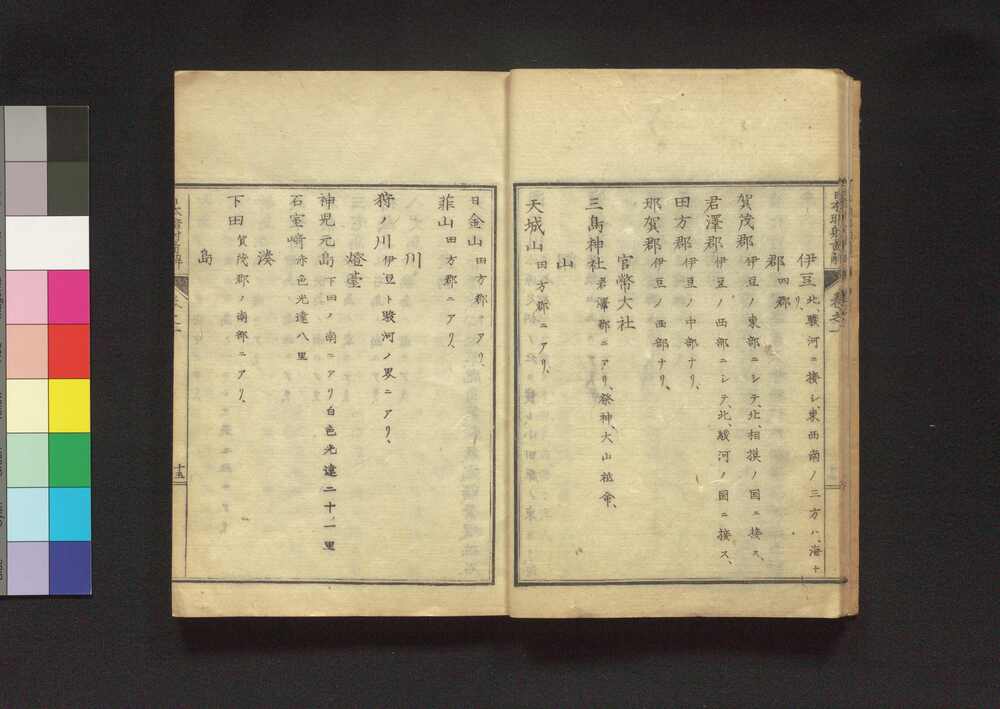 伊豆 北、駿河ニ接シ、東西南ノ三方ハ、海ナ
リ、
郡 四郡
賀茂郡 伊豆ノ東部ニシテ、北、相摸ノ国ニ接ス、
君澤郡 伊豆ノ西部ニシテ、北、駿河ノ国ニ接ス、
田方郡 伊豆ノ中部ナリ、
那賀郡 伊豆ノ西部ナリ、
官幣大社
三島神社 君澤郡ニアリ、祭神、大山祇命、
山
天城山 田方郡ニアリ、
日金山 田方郡ニアリ、
韮山 田方郡ニアリ、
川
狩ノ川 伊豆ト駿河ノ界ニアリ、
燈臺
神児元島 下田ノ南ニアリ白色光達二十一里
石室﨑 赤色光達八里
湊
下田 賀茂郡ノ南部ニアリ、
島
十五